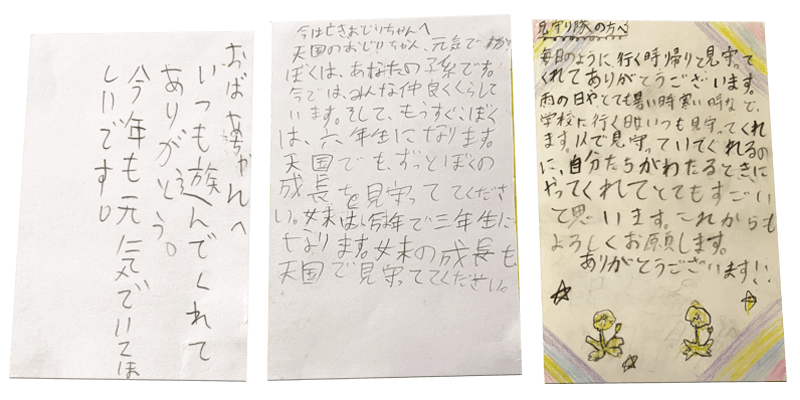 おばあちゃんへ
いつも遊んでくれて
ありがとう。
今年も元気でいてほ
しいです。
今は亡きおじいちゃんへ
天国のおじいちゃん、元気ですか?
ぼくは、あなたの孫です。
今では、みんな仲良くくらして
います。そして、もうすぐ、ぼく
は、六年生になります。
天国でも、ずっとぼくの
成長を見守っててくださ
い。妹は今年で三年生に
なります。妹の成長も
天国で見守っててください。
見守り隊の方へ
毎日のように、行く時帰りと見守って
くれてありがとうございます。
雨の日やとても暑い時寒い時など、
学校に行く日はいつも見守ってくれ
ます。
見守っていてくれるの
に、自分たちがわたるときに、
やってくれてとてもすごい
て思います。これからも
よろしくお願します。
ありがとうございます!!